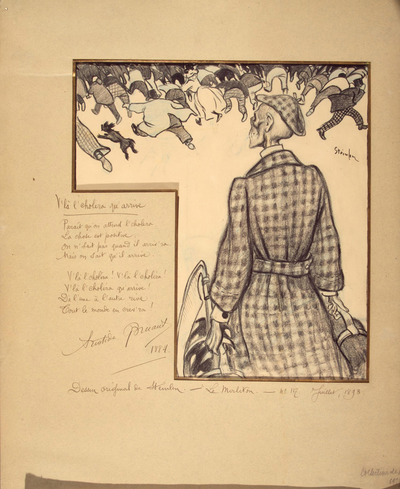 Steinlen
V'là l'choléra qu'arrive
Paraît qu'on attend l'choléra
La chose est positive
On n'sait pas quand il arriv'ra
Mais on sait qu'il arrive.
V'là l'choléra! V'là l'choléra!
V'là l'choléra qu'arrive!
De l'une à l'autre rive
Tout le monde en crèv'ra!
Aristide Bruant
1884
Dessin original de Steinlen. — Le Mirliton. — Juillet, 1893